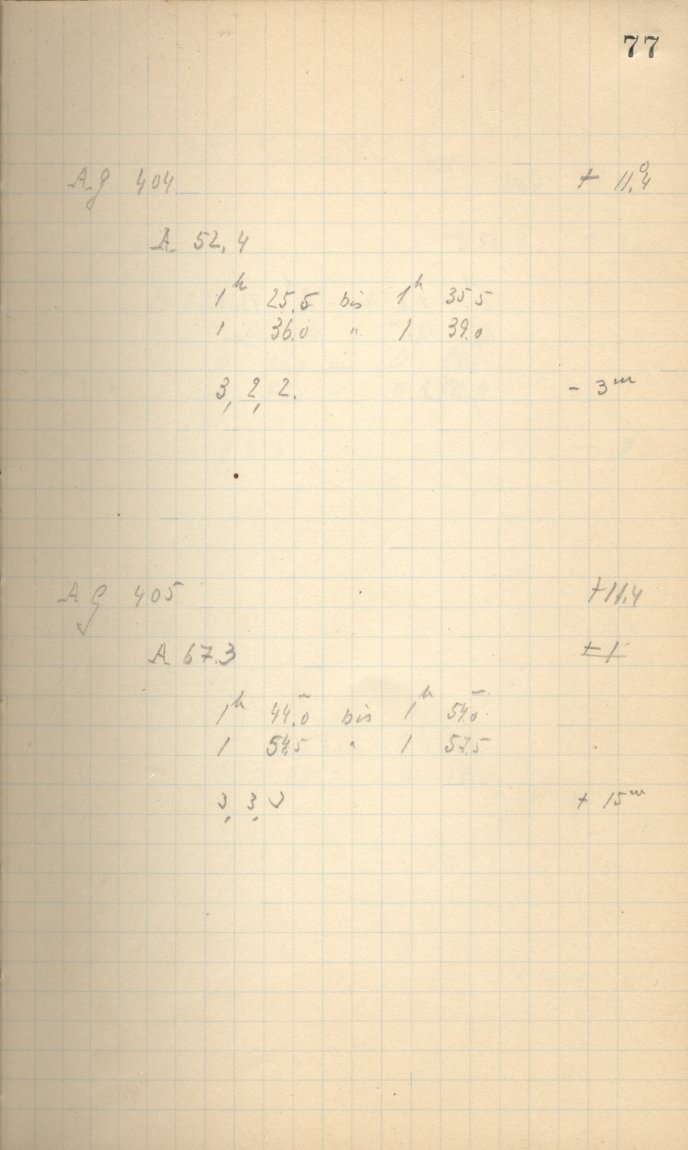 77
A g 404 + 11.°4
A 52,4
1 h 25,5 bis 1 h 35 5
1 36.0 " 1 39.0
3, 2, 2. - 3 m
A g 405 +11,4
A 67.3 ± 1
1 h 44.0 bis 1 h 54.0
1 54.5 " 1 57.5
3, 3, 3 + 15 m